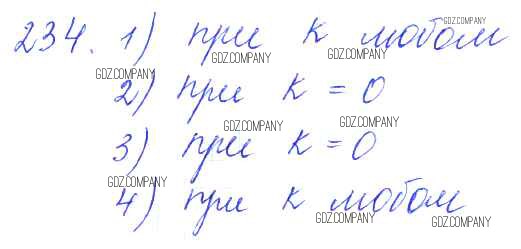 234. 1) при к любом
2) при к = 0
3) при к = 0
4) при к любом
GDZ.COMPANY
GDZ.COMPANY
GDZ.COMPANY
GDZ.COMPANY
GDZ.COMPANY
GDZ.COMPANY
GDZ.COMPANY
GDZ.COMPANY
GDZ.COMPANY